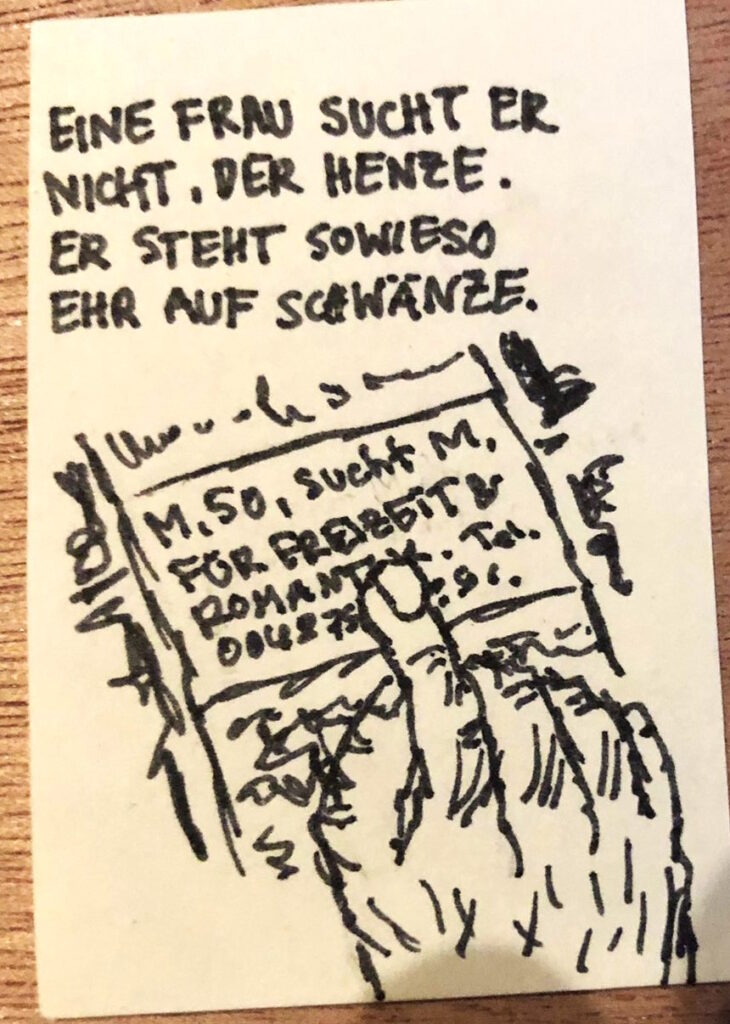 EINE FRAU SUCHT ER
NICHT, DER HENZE.
ER STEHT SOWIESO
EHR AUF SCHWÄNZE.
M, 50, SUCHT M.
FÜR FREIZEIT &
ROMANTIK. Tel.
004875